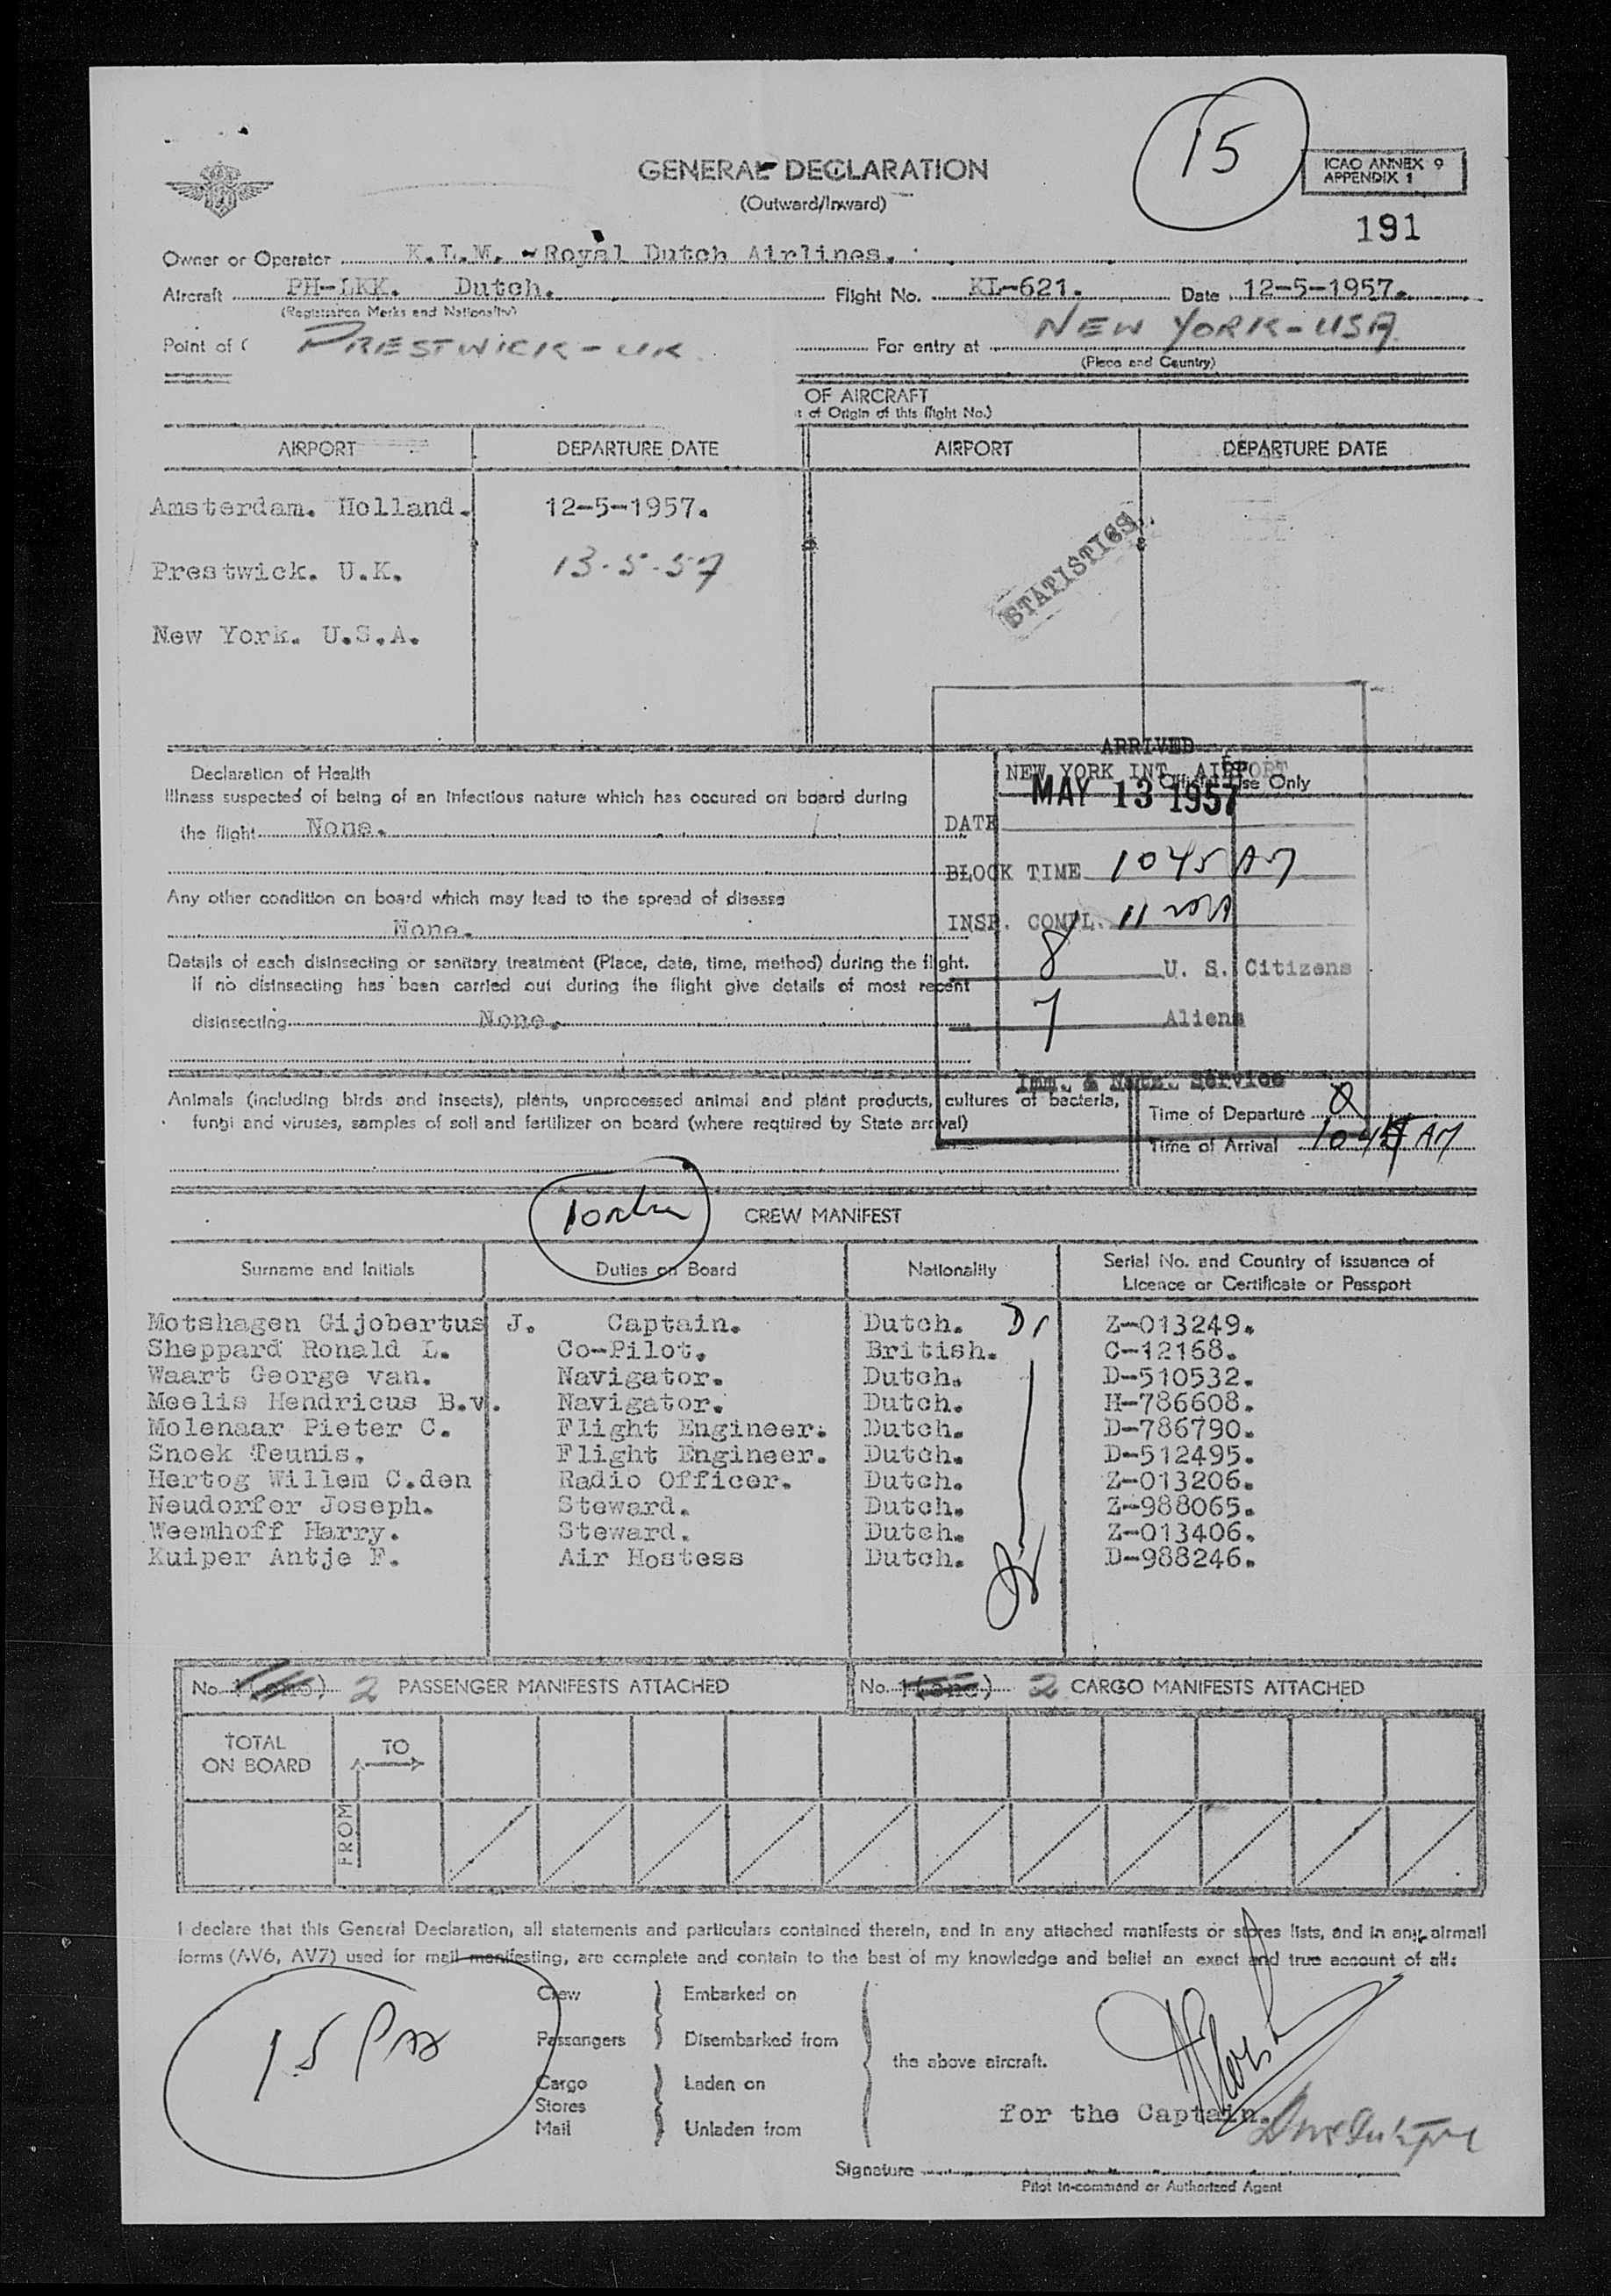 15
ICAO ANNEX 9
APPENDIX 1
GENERAL DECLARATION
(Outward/Inward)
191
Owner or Operator K.L.M. - Royal Dutch Airlines.
Aircraft PH-LKK. Dutch. Flight No. KL-621. Date 12-5-1957.
(Registration Marks and Nationality)
Point of C PRESTWICK - UK For entry at NEW YORK - USA
(Place and Country)
OF AIRCRAFT
t of Origin of this flight No.)
AIRPORT DEPARTURE DATE AIRPORT DEPARTURE DATE
Amsterdam. Holland. 12-5-1957.
Prestwick. U.K. 13-5-57
New York. U.S.A.
STATISTICS
ARRIVED
NEW YORK INT. AIRPORT
For Official Use Only
MAY 13 1957
DATE
BLOCK TIME 1045 AM
INSP. COMPL. 11
8 U. S. Citizens
7 Aliens
Imm. & Natz. Service
Declaration of Health
Illness suspected of being of an infectious nature which has occured on board during
the flight None.
Any other condition on board which may lead to the spread of disease
None.
Details of each disinsecting or sanitary treatment (Place, date, time, method) during the flight.
If no disinsecting has been carried out during the flight give details of most recent
disinsecting None.
Animals (including birds and insects), plants, unprocessed animal and plant products, cultures of bacteria,
fungi and viruses, samples of soil and fertilizer on board (where required by State arrival)
Time of Departure
Time of Arrival 1045 AM
CREW MANIFEST
Surname and Initials Duties on Board Nationality Serial No. and Country of issuance of
Licence or Certificate or Passport
Motshagen Gijobertus J. Captain. Dutch. Z-013249.
Sheppard Ronald L. Co-Pilot. British. C-12168.
Waart George van. Navigator. Dutch. D-510532.
Meelis Hendricus B.v. Navigator. Dutch. H-786608.
Molenaar Pieter C. Flight Engineer. Dutch. D-786790.
Snoek Teunis. Flight Engineer. Dutch. D-512495.
Hertog Willem C.den Radio Officer. Dutch. Z-013206.
Neudorfer Joseph. Steward. Dutch. Z-988065.
Weemhoff Harry. Steward. Dutch. Z-013406.
Kuiper Antje F. Air Hostess Dutch. D-988246.
No. 2 PASSENGER MANIFESTS ATTACHED No. 2 CARGO MANIFESTS ATTACHED
TOTAL
ON BOARD
TO
FROM
I declare that this General Declaration, all statements and particulars contained therein, and in any attached manifests or stores lists, and in any airmail
forms (AV6, AV7) used for mail manifesting, are complete and contain to the best of my knowledge and belief an exact and true account of all:
Crew Embarked on
Passengers Disembarked from
the above aircraft.
Cargo Laden on
Stores
Mail Unladen from
15 Pax
for the Captain.
Signature
Pilot in-command or Authorized Agent